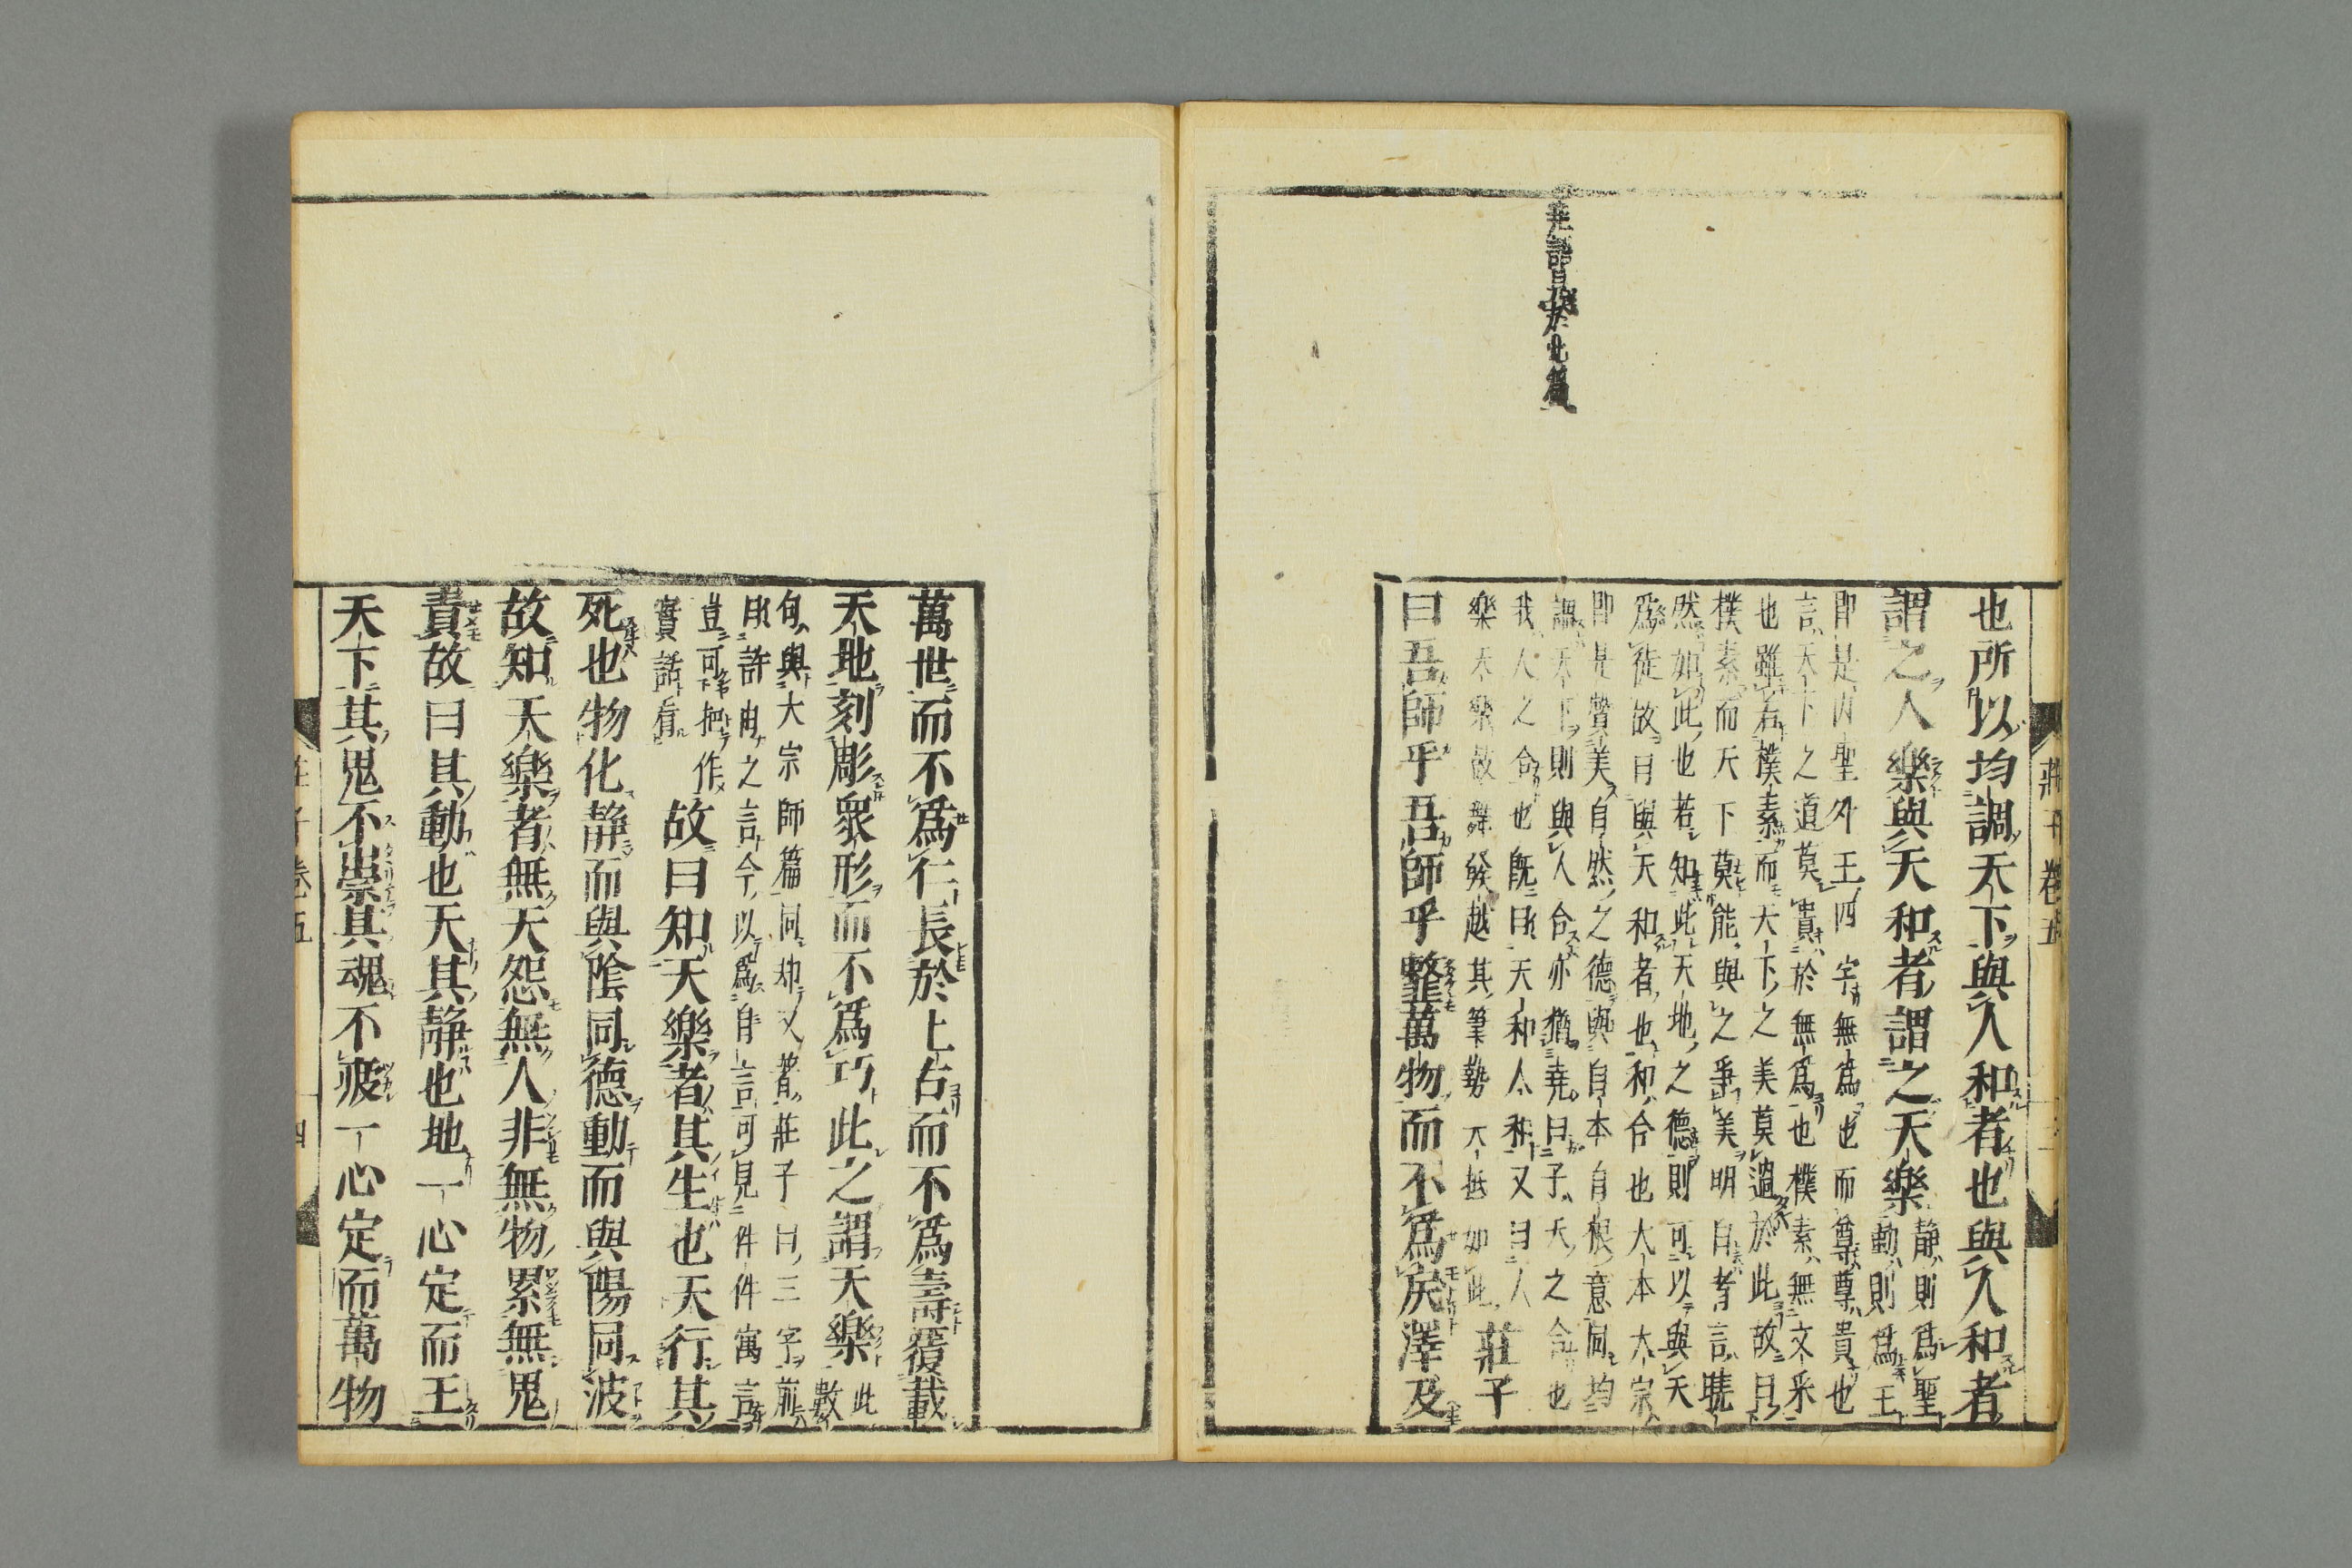 也所以均調天下與人和者也與人和者
謂之人樂與天和者謂之天樂
静則爲聖
動則爲王
即是内聖外王四字無為也而尊尊貴也
言天下之道莫貴於無爲也樸素無文采
也雖若樸素而天下之美莫過於此故曰
樸素而天下莫能與之爭美明白者言曉
然如此也若知此天地之德則可以與天
爲徒故曰與天和者也和合也大本大宗
即是贊美自然之德與自本自根意同均
調天下則與人合亦猶堯曰子天之合也
我人之合也既曰天和人和又曰人
樂天樂故舞發越其筆勢大抵如此
莊子
曰吾師乎吾師乎整萬物而不爲戾澤及
萬世而不爲仁長於上古而不爲壽覆載
天地刻彫衆形而不爲巧此之謂天樂
此
數
句與大宗師篇同却又着莊子曰三字前
以許由之言今以爲自言可見件件寓言
豈可把作
實話看
故曰知天樂者其生也天行其
死也物化静而與陰同德動而與陽同波
故知天樂者無天怨無人非無物累無鬼
責故曰其動也天其静也地一心定而王
天下其鬼不祟其魂不疲一心定而萬物
莊子卷五
四